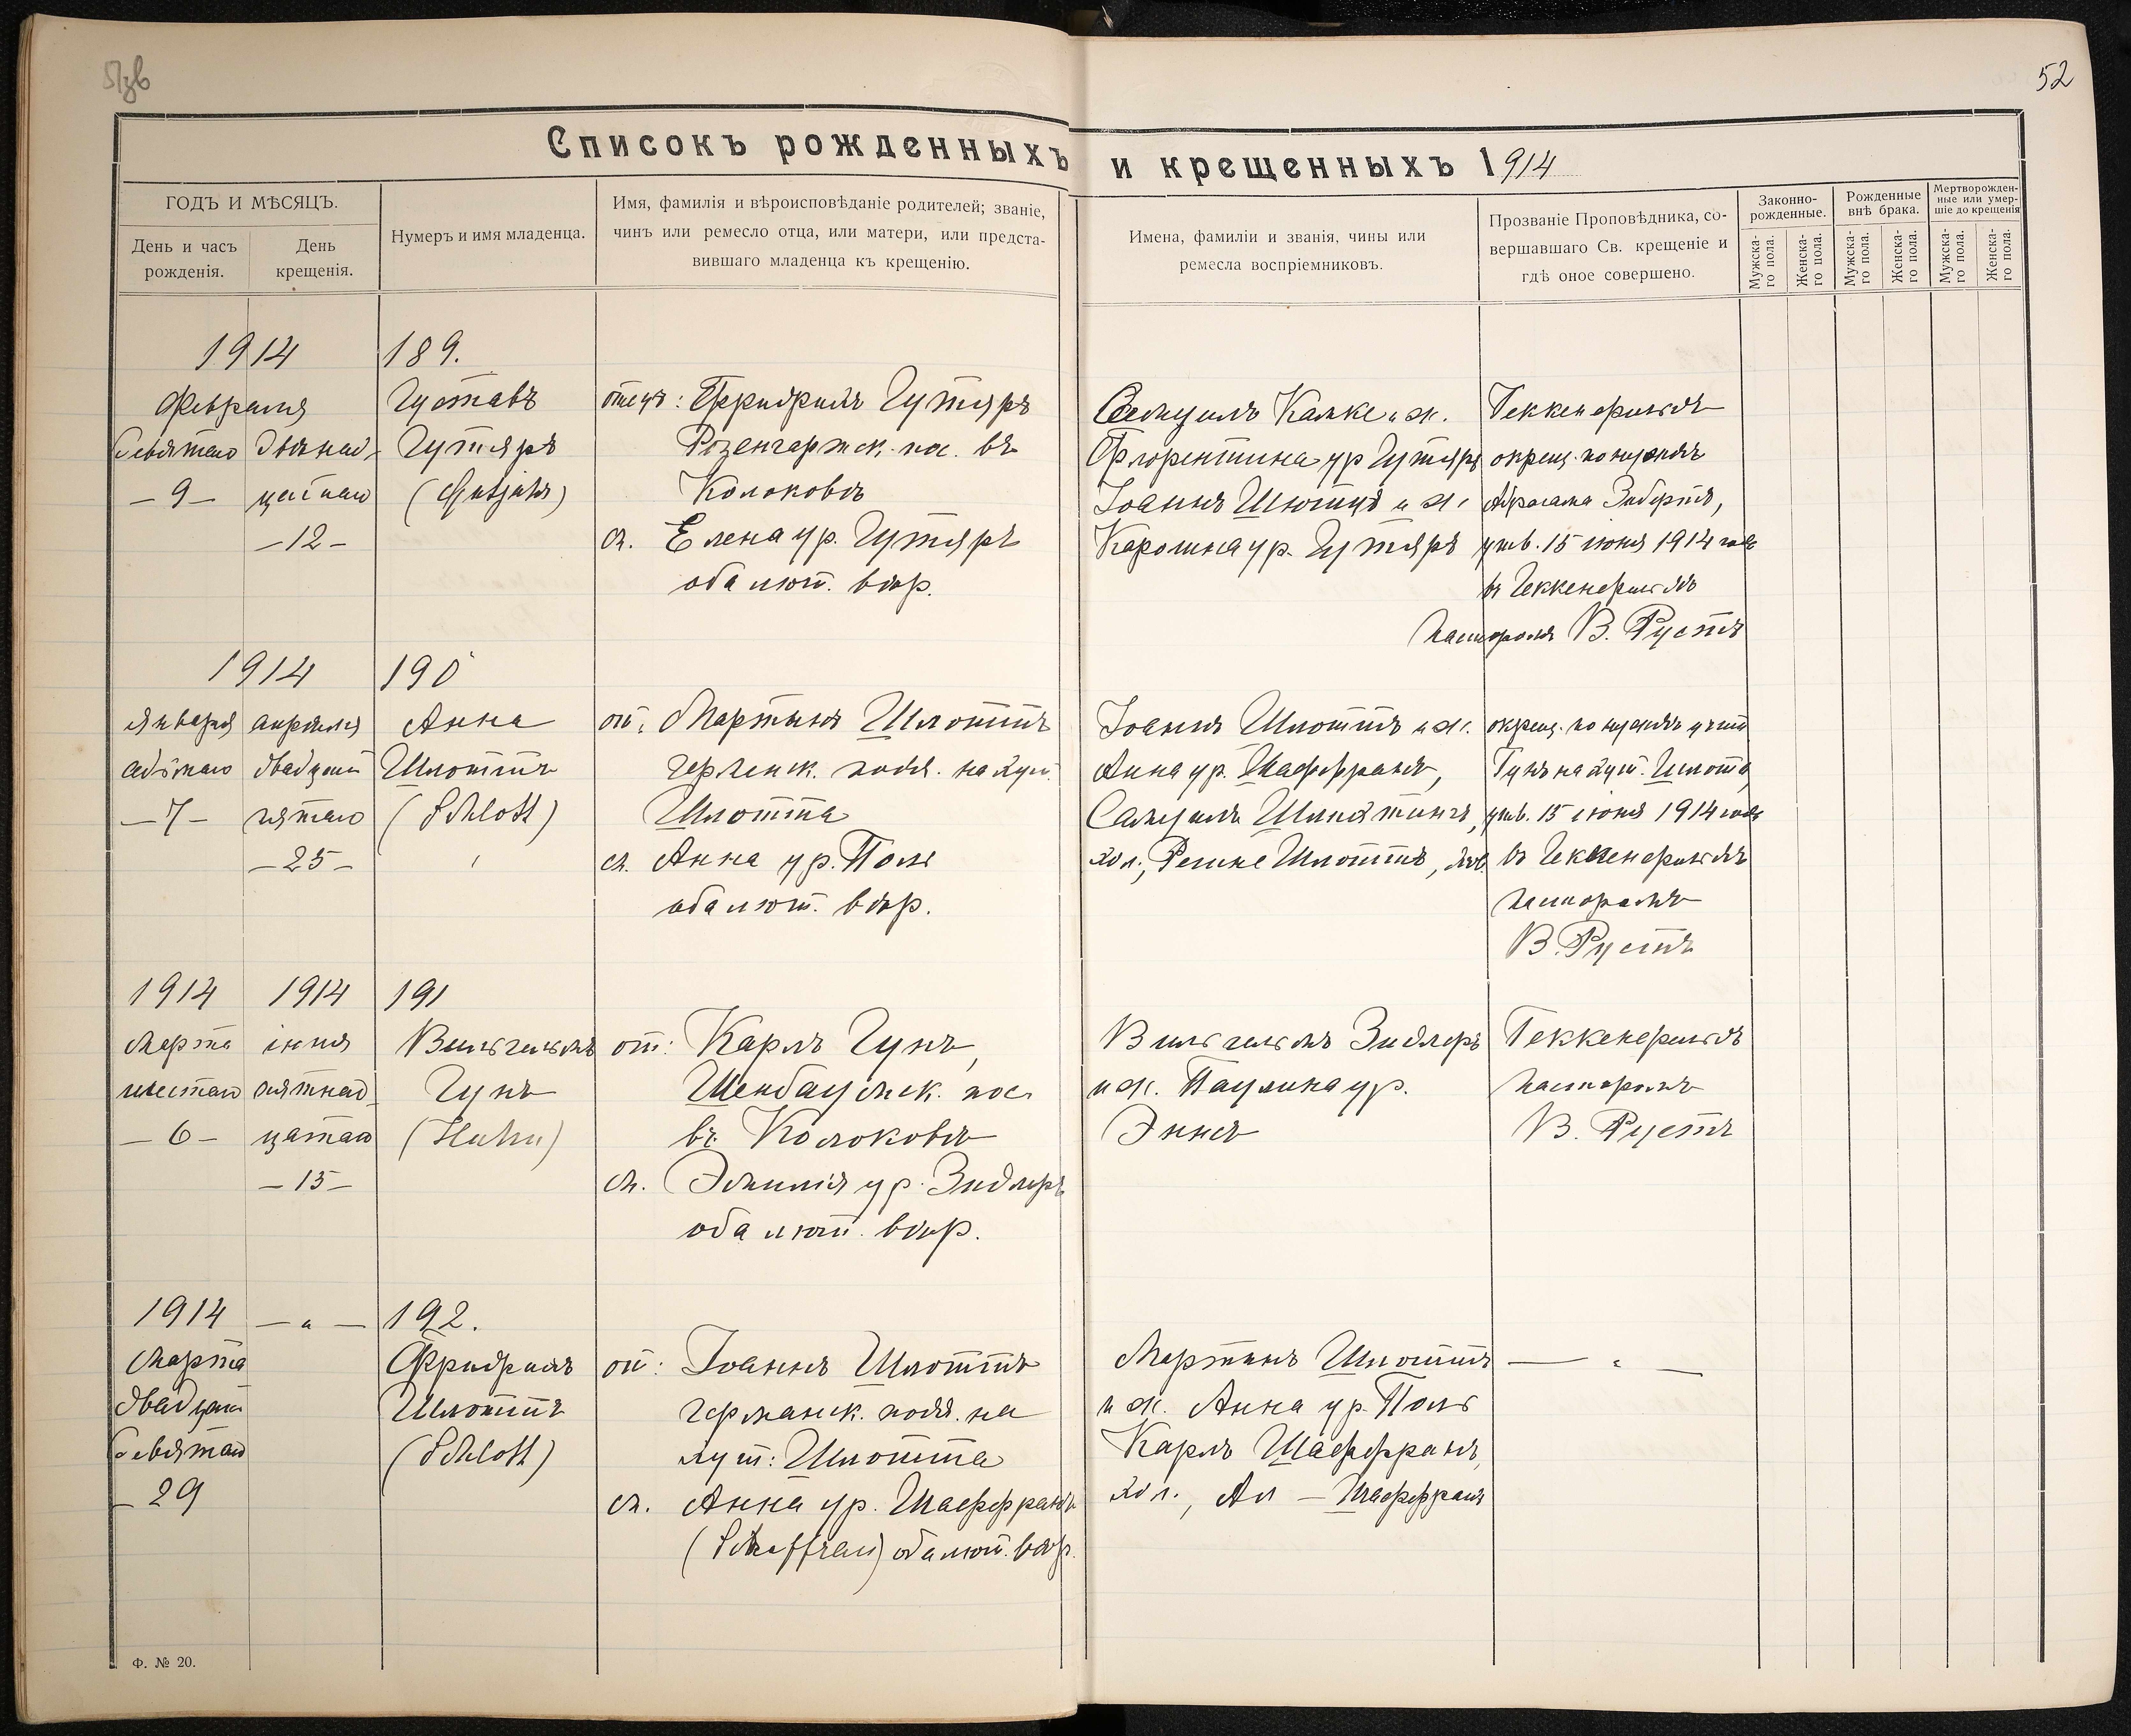 51об
52
Списокъ рожденныхъ и крещенныхъ 1914
ГОДЪ И МѢСЯЦЪ.
День и часъ рожденія.
День крещенія.
Нумеръ и имя младенца.
Имя, фамилія и вѣроисповѣданіе родителей; званіе,
чинъ или ремесло отца, или матери, или предста-
вившаго младенца къ крещенію.
Имена, фамиліи и званія, чины или
ремесла воспріемниковъ.
Прозваніе Проповѣдника, со-
вершавшаго Св. крещеніе и
гдѣ оное совершено.
Законно-
рожденные.
Рожденные
внѣ брака.
Мертворожден-
ные или умер-
шіе до крещенія
Мужска-
го пола.
Женска-
го пола.
Мужска-
го пола.
Женска-
го пола.
Мужска-
го пола.
Женска-
го пола.
1914
Февраля
девятаго двѣнад-
- 9 - цатаго
- 12 -
189.
Густавъ
Гутяръ
(Gutjahr)
отецъ: Фридрихъ Гутяръ
Розенгартск. пос. въ
м. Елена ур. Гутяръ
оба лют. вѣр.
Самуилъ Камке и ж.
Флорентина ур Гутяръ
Іоаннъ Шютцъ и ж.
Каролина ур. Гутяръ
Геккенфельдъ
окрещ. по нуждѣ
утв. 15 июня 1914 года
въ Геккенфельдѣ
пасторомъ В. Рустъ
1914
января апрѣля
седьмаго двадцать
- 7 - пятаго
- 25 -
190
Анна
Шлоттъ
(Schlott)
от: Мартынъ Шлоттъ
германск. подд. на хут.
Шлотта
м. Анна ур. Поль
оба лют. вѣр.
Іоаннъ Шлоттъ и ж.
Анна ур. Шаффранъ,
хол., Шлоттъ, дѣв.
окрещ. по нуждѣ учит
Гунъ на хут. Шлотта,
утв. 15 июня 1914 года
въ Геккенфельдѣ
пасторомъ
В. Рустъ
1914 1914
Марта іюня
шестаго пятнад-
- 6 - цатаго
- 15 -
191
Вильгельмъ
Гунъ
(Huhn)
от: Карлъ Гунъ,
Шенбаумск. пос.
м. Эмилія ур. Зидлеръ
оба лют. вѣр.
Вильгельмъ Зидлеръ
и ж. Паулина ур.
Геккенфельдъ
пасторомъ
В. Рустъ
1914 - " -
Марта
двадцать
девятаго
- 29
192.
Фридрихъ
Шлоттъ
(Schlott)
от: Іоаннъ Шлоттъ
германск. подд. на
хут: Шлотта
м. Анна ур. Шаффранъ
(Schaffran) оба лют. вѣр.
Мартынъ Шлоттъ
и ж. Анна ур. Поль
Карлъ Шаффранъ,
хол., Шаффранъ
- " -
Ф. № 20.